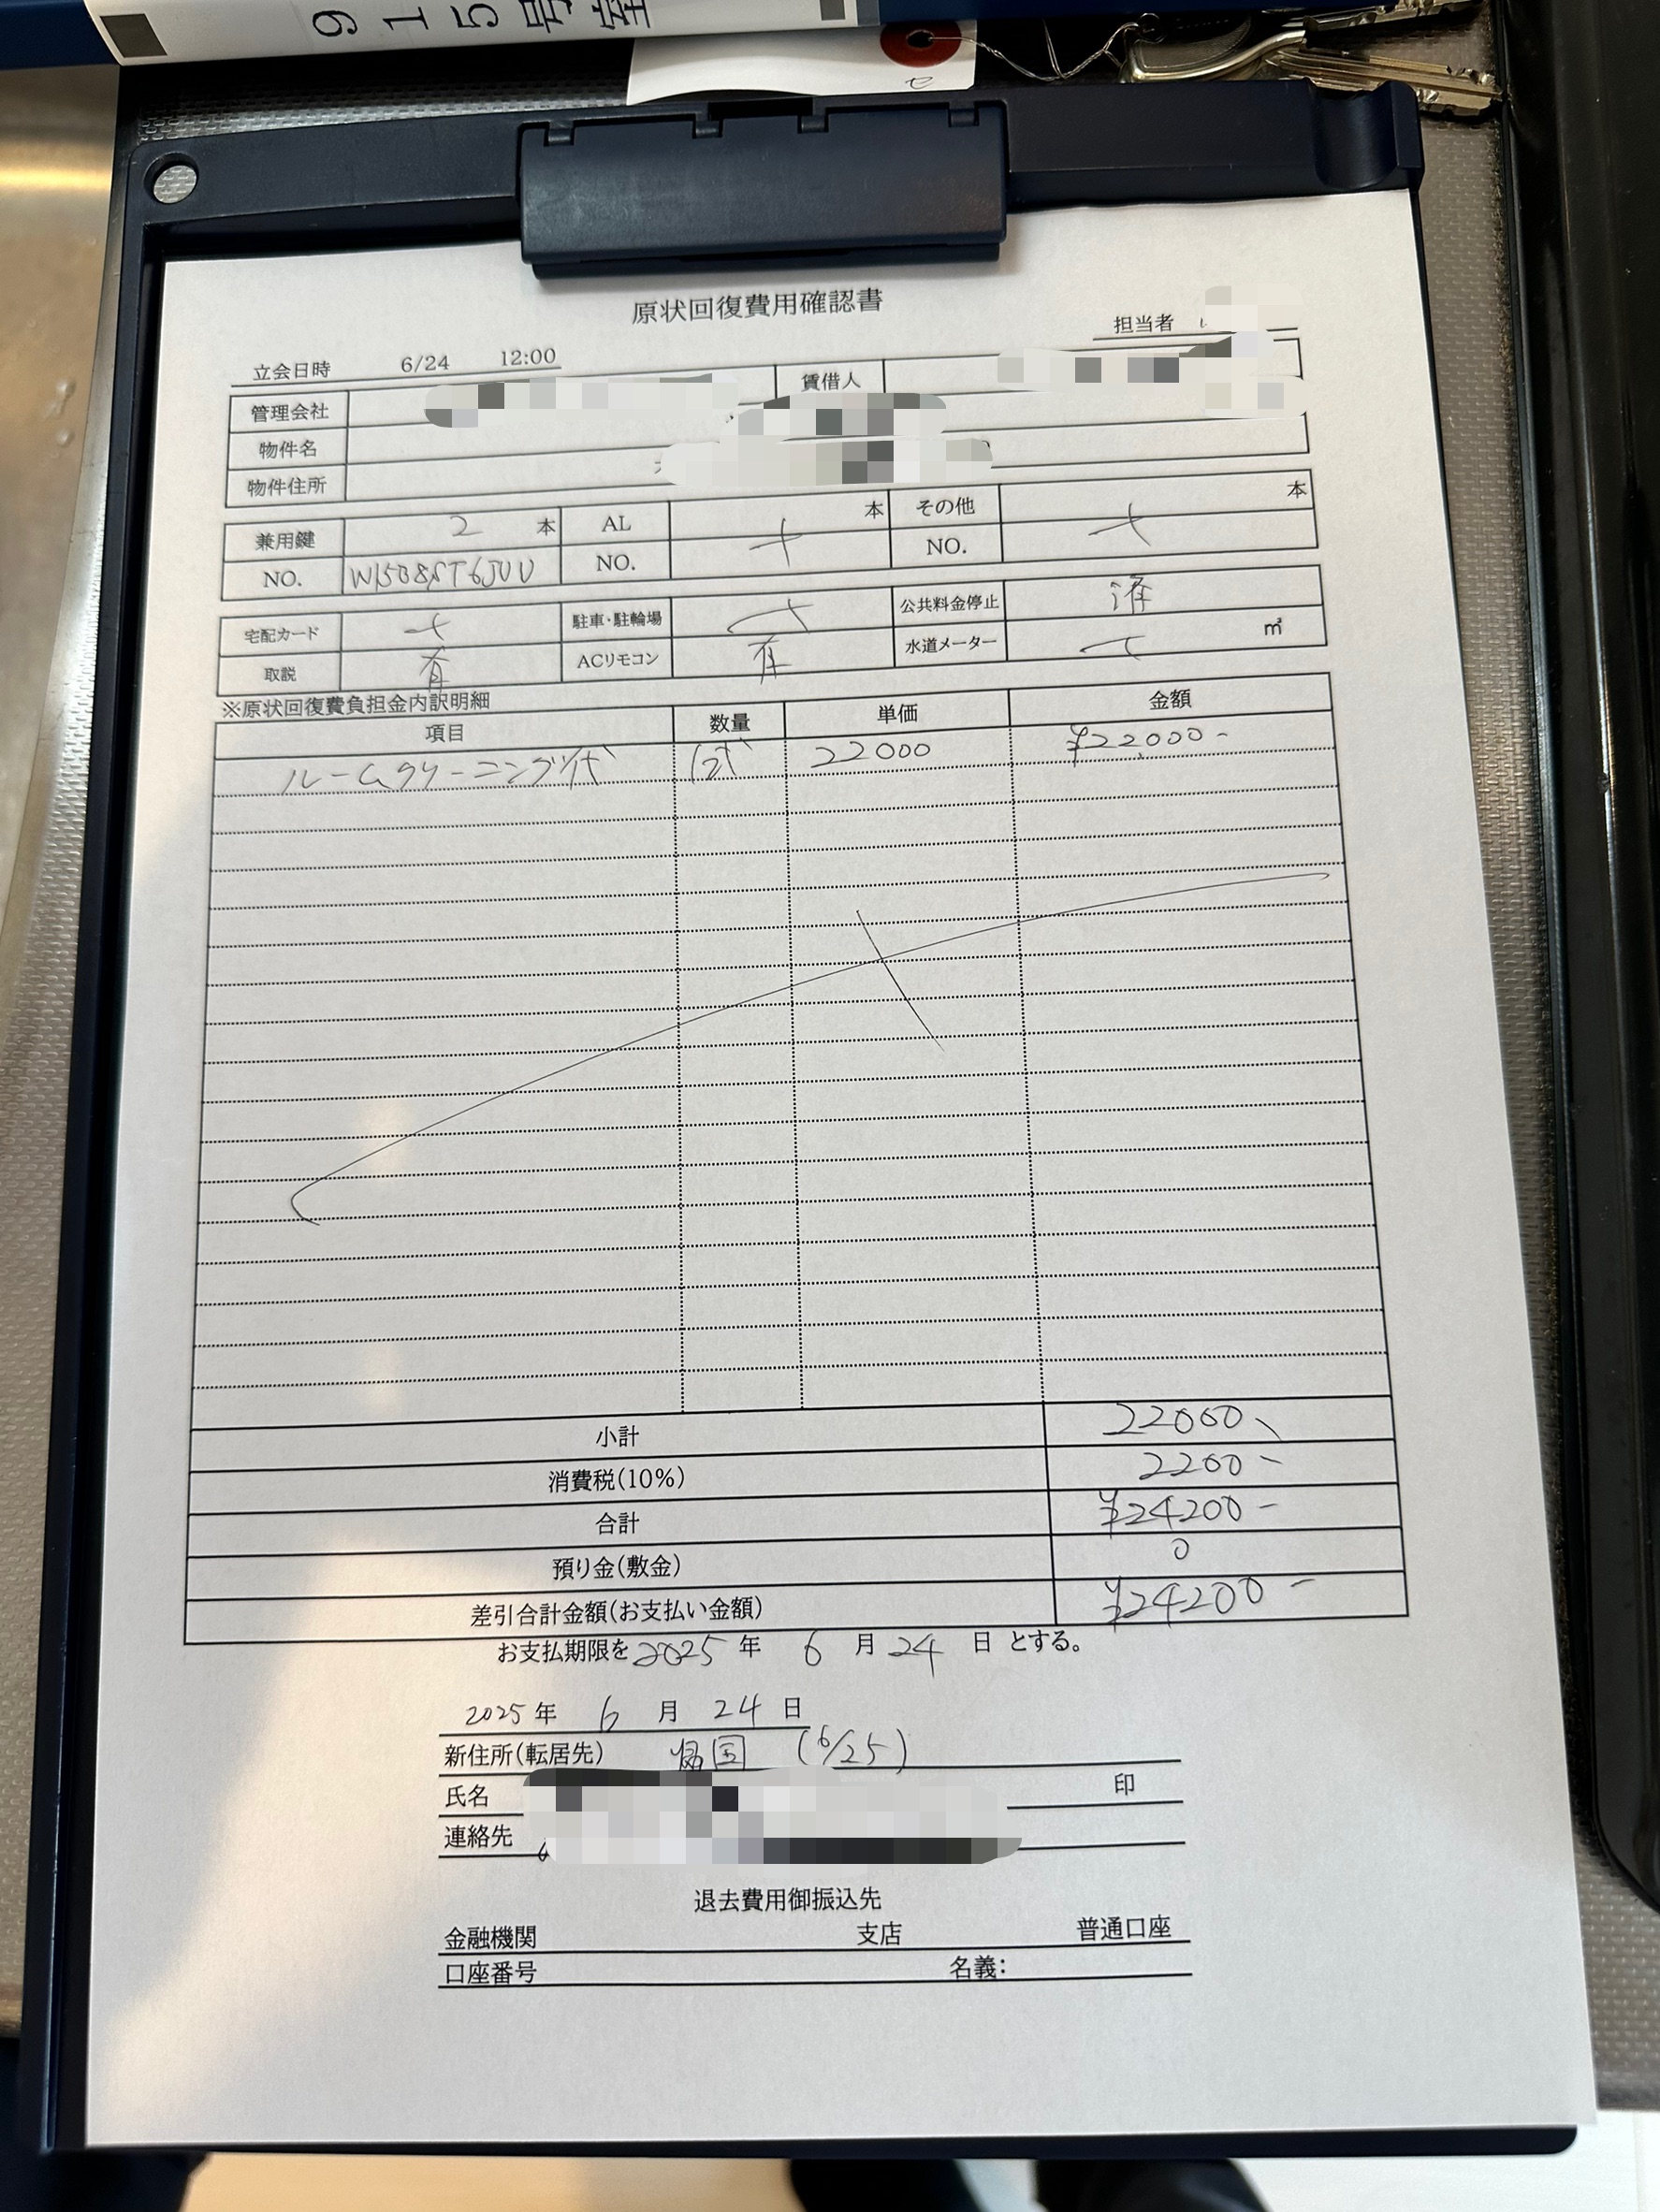 915号室
原状回復費用確認書
担当者
立会日時 6/24 12:00
管理会社 賃借人
物件名
物件住所
兼用鍵 2 本 AL 本 その他 本
NO. NO. NO.
宅配カード 駐車・駐輪場 公共料金停止 済
取説 有 ACリモコン 有 水道メーター ㎥
※原状回復費負担金内訳明細
項目 数量 単価 金額
ルームクリーニング代 1式 22000 ¥22000-
小計 22000
消費税(10%) 2200-
合計 ¥24200-
預り金(敷金) 0
差引合計金額(お支払い金額) ¥24200-
お支払期限を2025 年 6 月 24 日 とする。
2025 年 6 月 24 日
新住所(転居先) 帰国 (6/25)
氏名 印
連絡先
退去費用御振込先
金融機関 支店 普通口座
口座番号 名義: